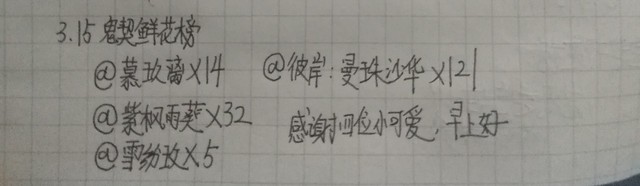 3.15 鬼契鲜花榜
@慕玖离×14
@彼岸:曼珠沙华×121
@紫枫雨葵×32
感谢四位小可爱,早上好
@雪纷玫×5